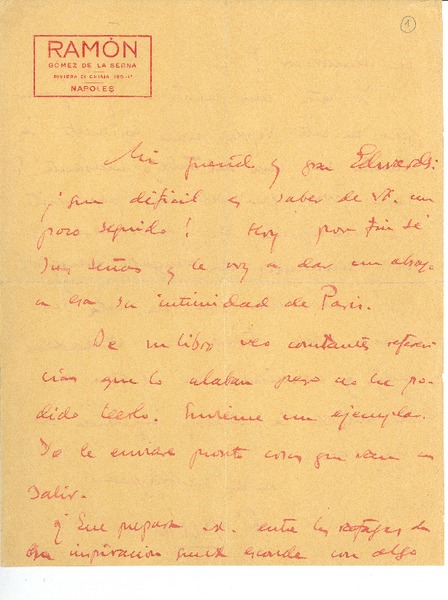 1
RAMÓN
GOMEZ DE LA SERNA
RIVIERA DI CHIAIA
NAPOLES
Mi querido y gran Edwards:
¡que dificil es saber de Vd. un
poco seguido! Hoy por fin sé
sus señas y le voy a dar un abrazo
a esa su intimidad de Paris.
De su libro veo constantes referen
cias que lo alaban pero no he po
dido leerlo. Envieme un ejemplar.
Yo le enviaré pronto cosas que van a
salir.
¿Que prepara Vd. entre las rafagas de
su inspiración con algo